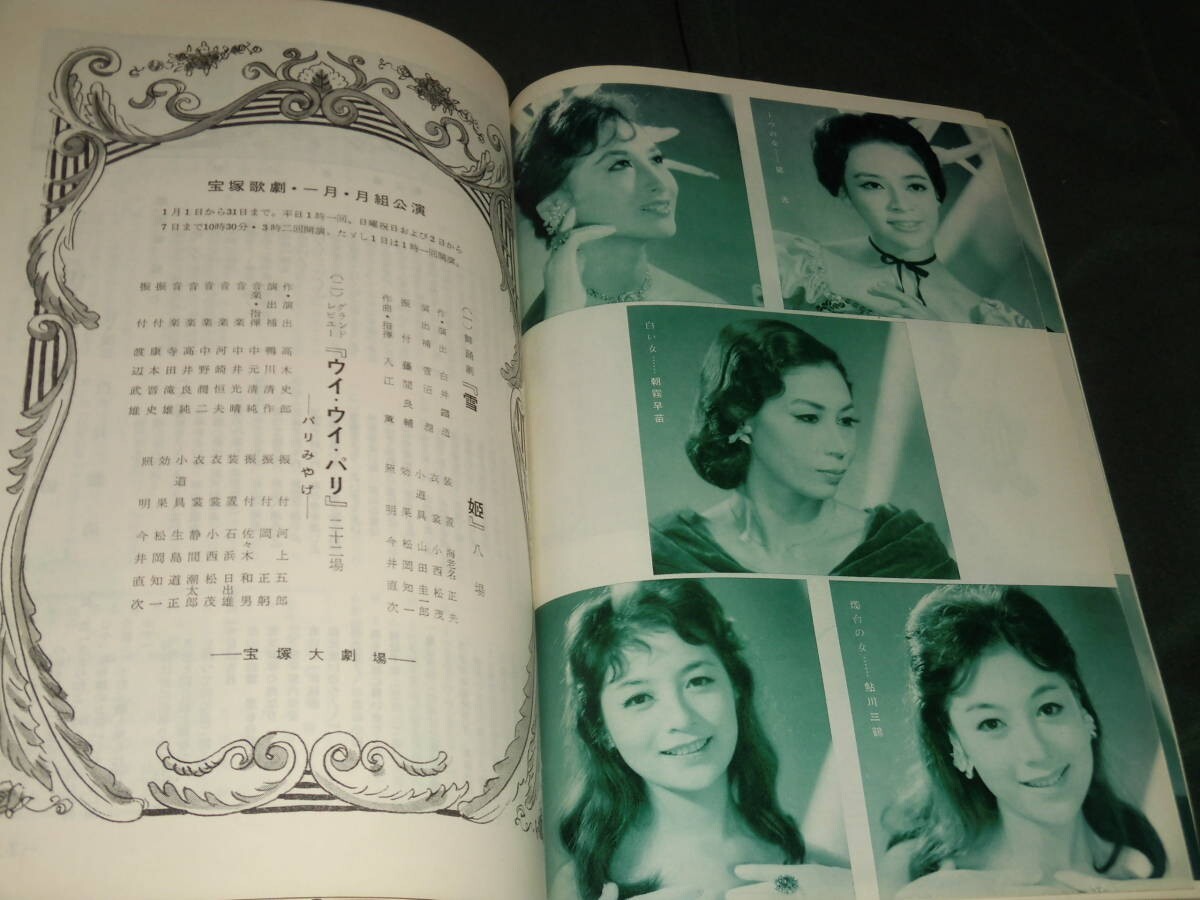 宝塚歌劇・一月・月組公演
1月1日から31日まで。平日1時一回、日曜祝日および2日から
7日まで10時30分・3時二回開演、たゞし1日は1時一回開演。
(一)舞踊劇『雪姫』八場
作・演出 白井鐵造
演出補 菅沼潤
振付 藤間良輔
作曲・指揮 入江薫
装置 海老名正夫
衣裳 小西松茂
小道具 山田圭一郎
効果 松岡知一
照明 今井直次
(二)グランドレビュー『ウイ・ウイ・パリ』二十二場
——パリみやげ——
作・演出 高木史郎
演出補 鴨川清作
音楽・指揮 中元清純
音楽 中井光晴
音楽 河崎恒夫
音楽 中野潤二
音楽 高井良純
音楽 寺田滝雄
振付 康本晋史
振付 渡辺武雄
振付 河上五郎
振付 岡正躬
振付 佐々木和男
装置 石浜日出雄
衣裳 小西松茂
衣裳 静間潮太郎
小道具 生島道正
効果 松岡知一
照明 今井直次
——宝塚大劇場——
白い女……朝霧早苗
燭台の女……鮎川三鶴